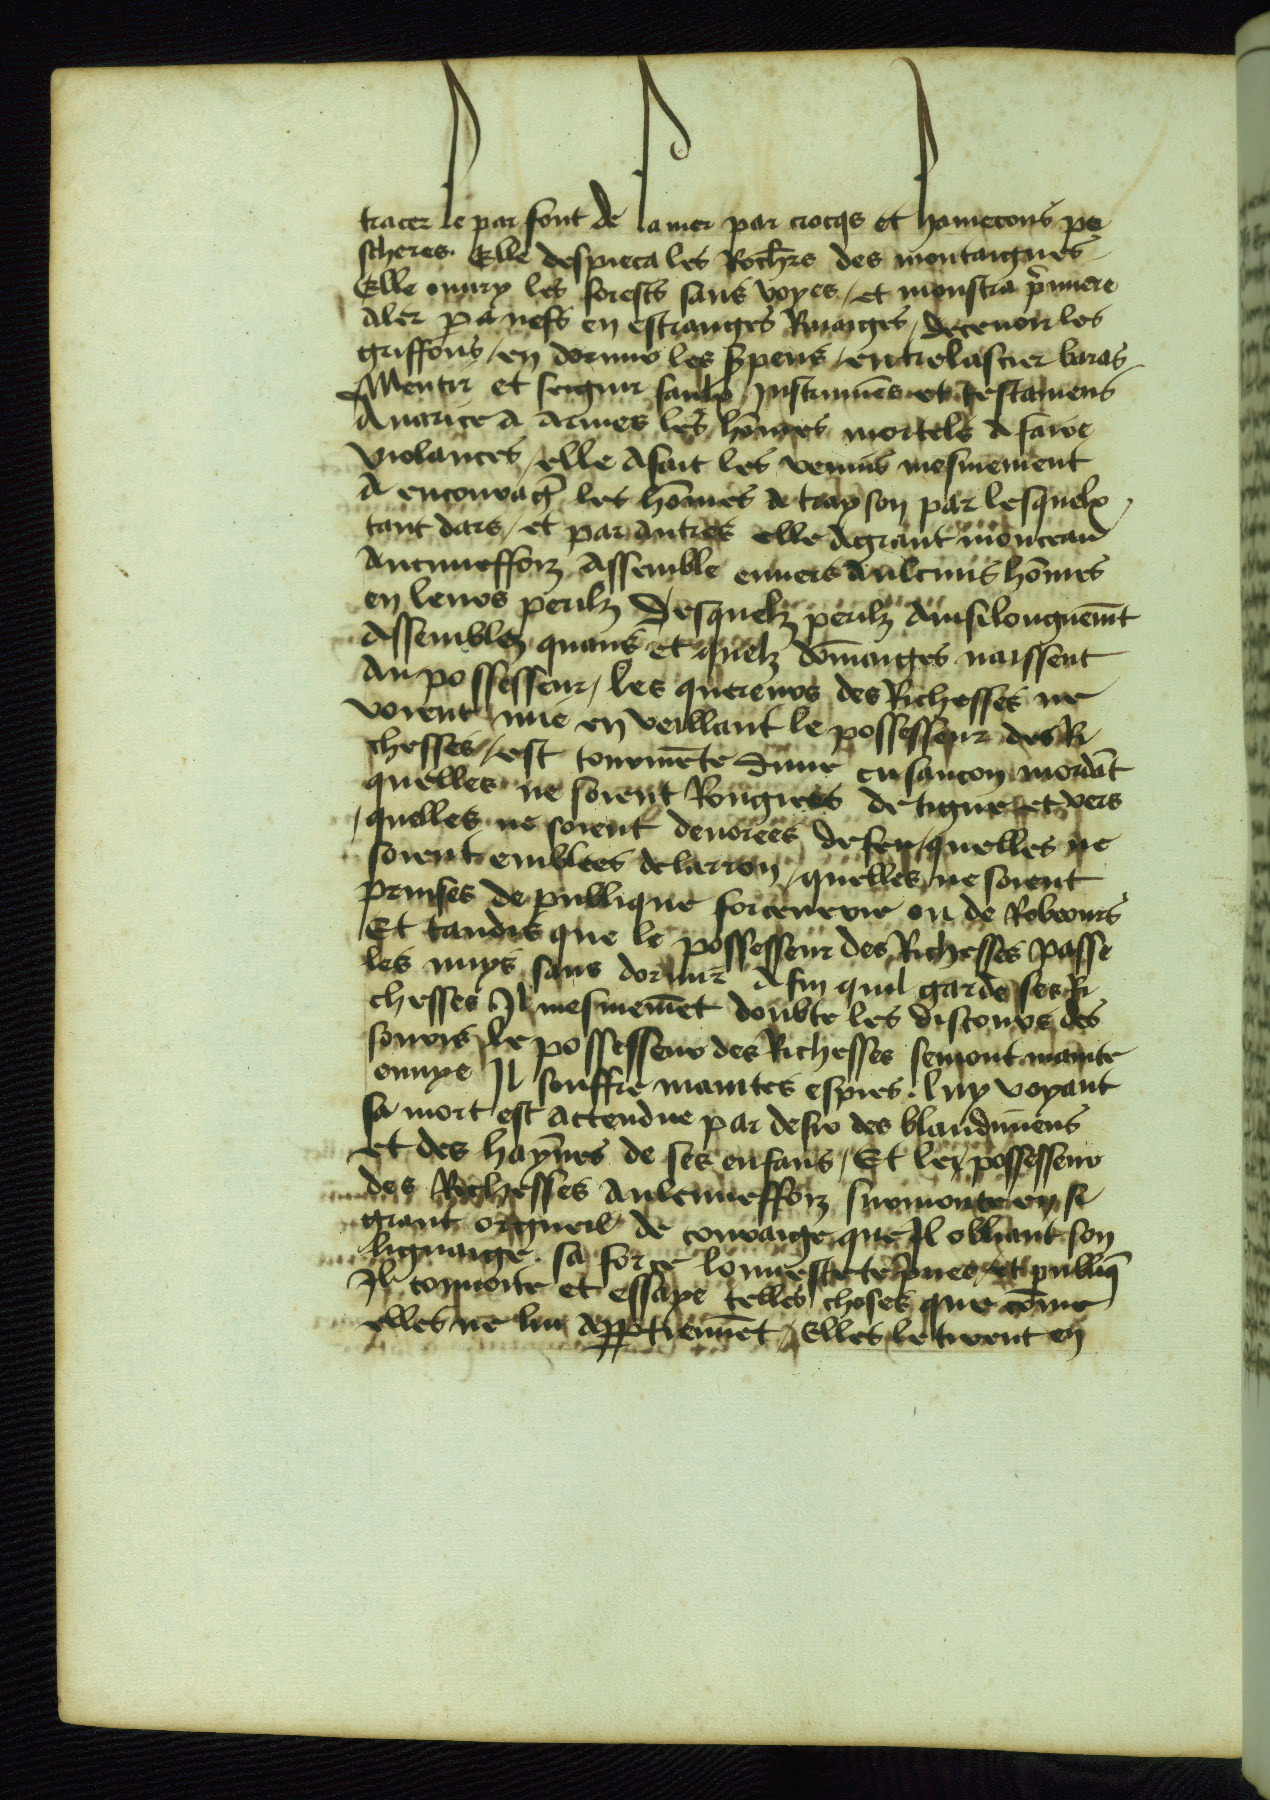 tracer le parfont de la mer par crocqs et hamecons pe
scheres. Elle despieca les Rochrs des montaignes
Elle ouury les forests sans voyes / et monstra prmiere
aler par nefs en estranges Riuaiges / deceuoir les
griffons / en dormir les serpens / entrelascier baras
Mentir et seignier faulx Instrumens et testamens
Auarice a armes les hommes mortels a faire
violances / elle a fait les venins mesmement
a encouragr les hommes de trayson par lesquelx
tant dars / et par autres elle a grant monceau
Aucuneffoiz assemble enuers aulcuns hommes
en leurs perilz Desquelz perilz ainsi longuement
assemblez quans et quelz dommaiges naissent
au possesseur / les quereurs des Richesses ne
voient mie en veillant le possesseur des Ri
chesses / est tourmente dune cusancon mordant
quelles ne soient Rongiees de tigne et vers
/ quelles ne soient deuorees de feu / quelles ne
soient emblees de larron / quelles ne soient
prinses de publique forcenerie ou de Robeours
Et tandis que le possesseur des Richesses passe
les nuys sans dormir a fin quil garde ses Ri
chesses Il mesmement doubte les discours des
souris Le possesseur des Richesses semont mainte
enuye Il souffre maintes espies. luy voyant
sa mort est actendue par desir des blandimens
et des haynnes de ses enfans / Et le possesseur
des Richesses aulcuneffoiz surmonte en si
grant orgueil de couraige que Il obliant son
lignaige. sa force
Il conuoite et essaye telles choses que comme
elles ne lui appartiennent / Elles le tirent en